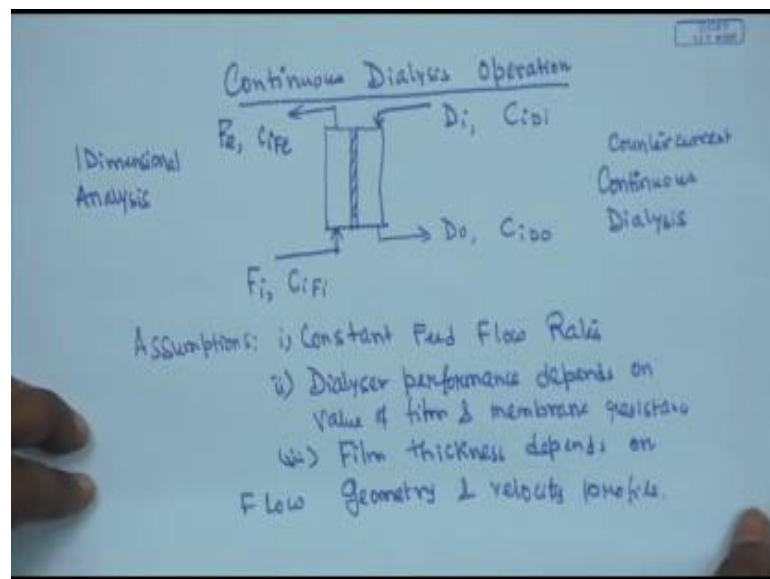 Continuous Dialysis Operation
Di, CiDi
CiFe
1 Dimensional
Analysis
Countercurrent
Continuous
Dialysis
Do, CiDo
Fi, CiFi
Assumptions: i) Constant Feed Flow Rates
ii) Dialyser performance depends on
value of film & membrane resistance
iii) Film thickness depends on
Flow geometry & velocity profile.